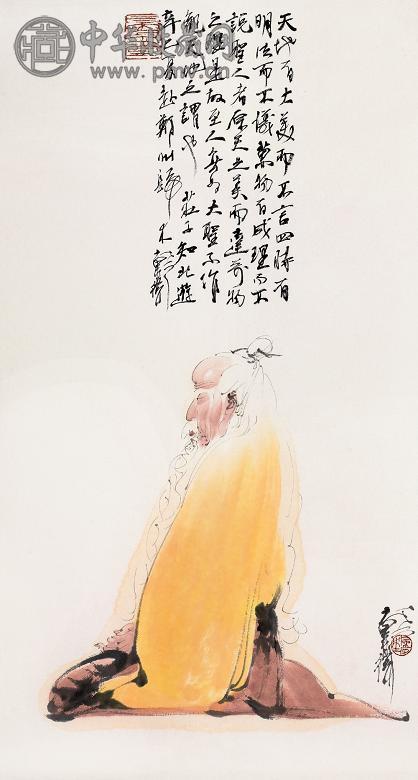 中华收藏网
天地有大美而不言四時有
明法而不議萬物有成理而不
說聖人者原天地之美而達萬物
之理是故至人無為大聖不作
觀天地之謂也 莊子知北遊
辛巳赴鄭州歸來